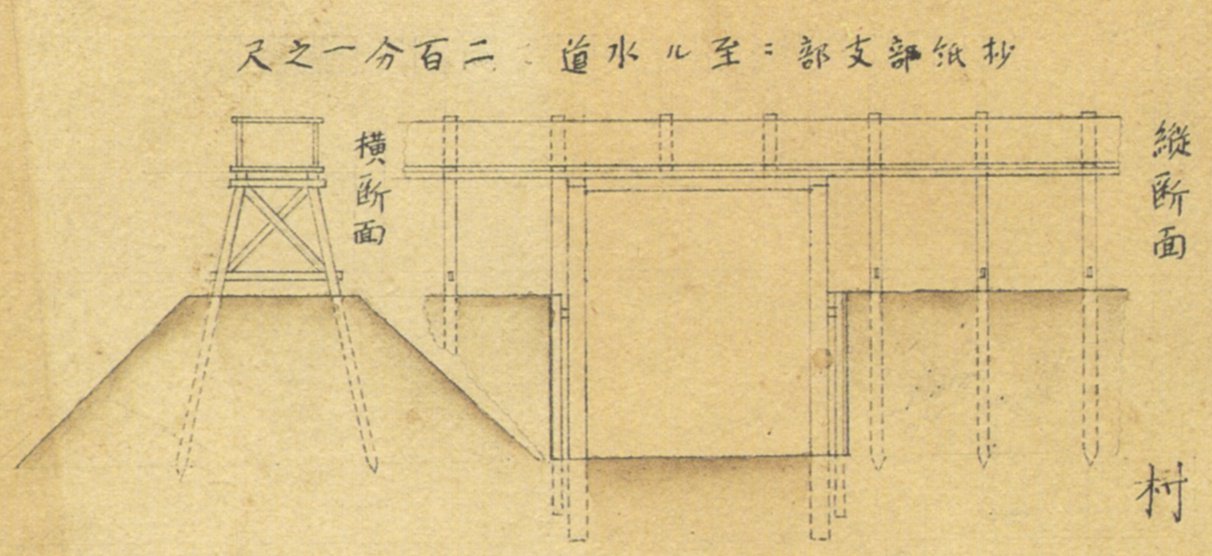 抄紙部支部ニ至ル水道 二百分一之尺
縦断面
横断面
村